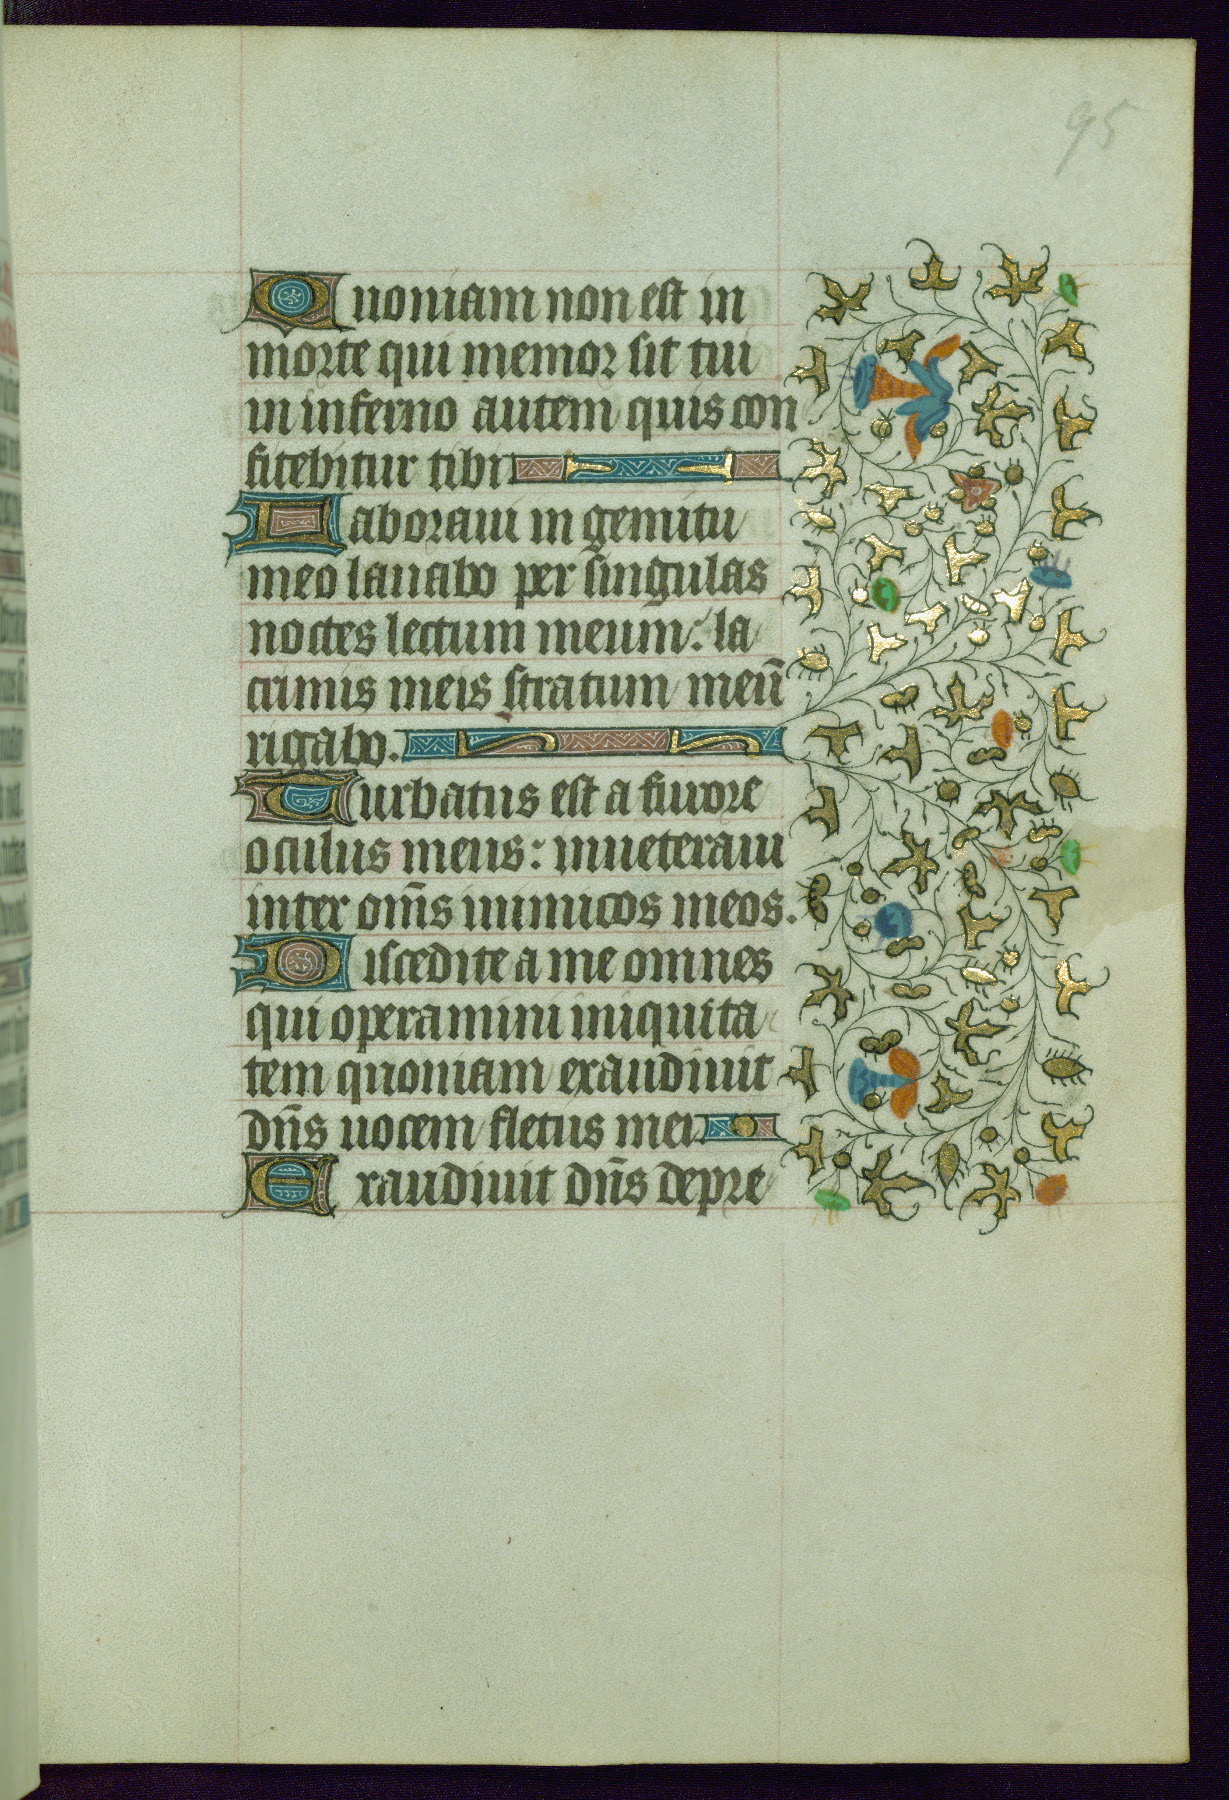 95
Quoniam non est in
morte qui memor sit tui
in inferno autem quis con
fitebitur tibi
Laboraui in gemitu
meo lauabo per singulas
noctes lectum meum: la
crimis meis stratum meū
rigabo.
Turbatus est a furore
oculus meus: inueteraui
inter om̄s inimicos meos.
Discedite a me omnes
qui operamini iniquita
tem quoniam exaudiuit
dn̄s uocem fletus mei
Exaudiuit dn̄s depre